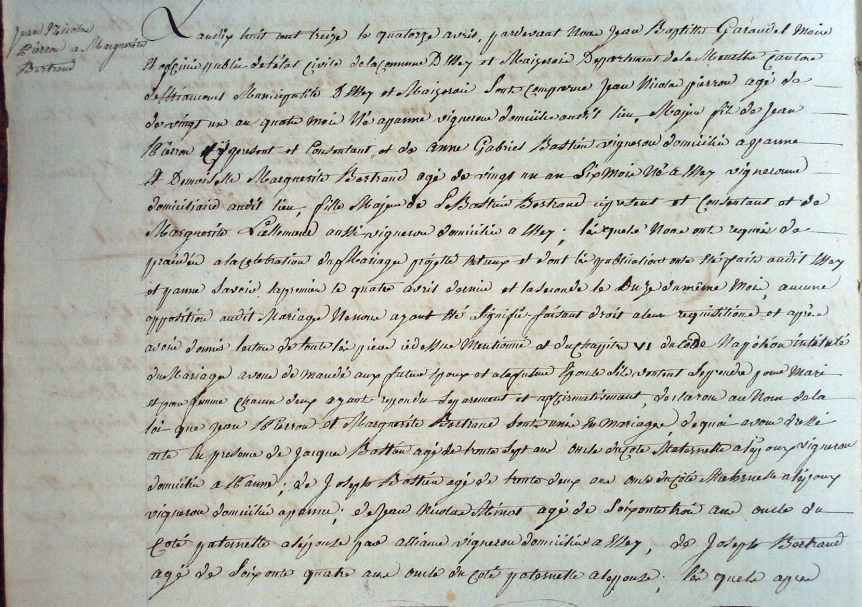 Jean Nicolas
Pierron a Marguerite
Bertrand
L'an dix huit cent treize le quatorze avril, pardevant Nous Jean Baptiste Garaudel Maire
et officier public de l'état Civile de la Commune D'Mey et Maizeroi Département de la Moselle Canton
Municipalité D'Mey et Maizeroi sont comparue Jean Nicola pierron agé de
de vingt un an quatre moi Né apanne vigneron domicilié audit lieu, Majeur fil de Jean
Pierron cy present et Consentant et de anne Gabriel Bastien vigneron domicilié apanne
Et Demoiselle Marguerite Bertrand agé de vingt un an Six Moi Né a Mey vigneronne
domiciliaire audit lieu, fille Majeur de Sebastien Bertrand cy present et Consentant et de
Marguerite Lallemand aussi vigneron domicilié a Mey; lesquels Nous ont requis de
procéder a la Celebration du Mariage projetté entreux et dont les publications ont été fait audit Mey
et panne Savoir la premier le quatre avril dernier et la seconde le onze du même Moi, aucune
opposition audit Mariage Ne nous ayant été Signifié faisant droit a leur requisitions et après
avoir donné lecture de toute les pieces cidessus Mentionné et du chapitre VI du Code Napoléon intitulé
du Mariage avons demandé aux futur Epoux et a la future Epouse s'ils veulent se prendre pour Mari
et pour femme chacun deux ayant repondu Separement et affirmativement, declaron au Nom de la
loi que Jean Pierron et Marguerite Bertrand sont unie en mariage, de quoi avons dressé
acte en presence de Jacques Bastien agé de trente sept ans oncle du Coté Maternelle a l'epoux vigneron
domicilié a Panne; de Joseph Bastien agé de trente deux ans oncle du Coté Maternelle a l'epoux
vigneron domicilié apanne; de Jean Nicolas agé de Soixante ans oncle du
Coté paternelle a l'epouse par alliance vigneron domicilié a Mey, de Joseph Bertrand
agé de Soixante quatre ans oncle du coté paternelle a l'epouse; lesquels après